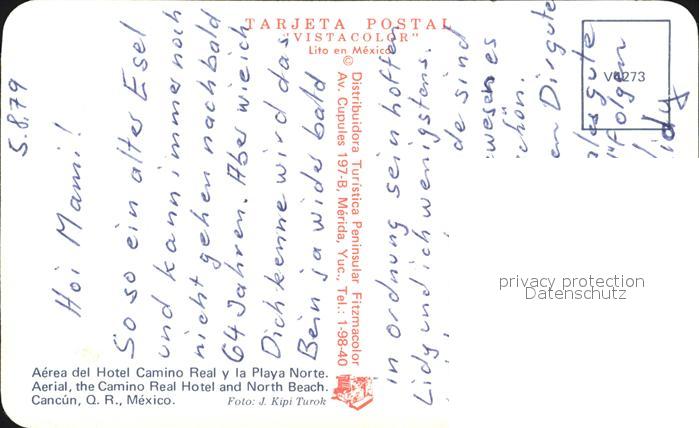 TARJETA POSTAL
"VISTACOLOR"
Lito en México
©
Distribuidora Turística Peninsular Fitzmacolor
Av. Cupules 197-B, Mérida, Yuc., Tel.: 1-98-40
V4273
5.8.79
Hoi Mami!
So so ein alter Esel
und kann immer noch
nicht gehen nach bald
64 Jahren. Aber wie ich
Dich kenne wird das
Bein ja wider bald
in Ordnung sein hoffen
Lidy und ich wenigstens.
de sind
ewesen es
chön.
en Dir gute
les gute
folgen
Lidy
privacy protection
Datenschutz
Aérea del Hotel Camino Real y la Playa Norte.
Aerial, the Camino Real Hotel and North Beach.
Cancún, Q. R., México.
Foto: J. Kipi Turok